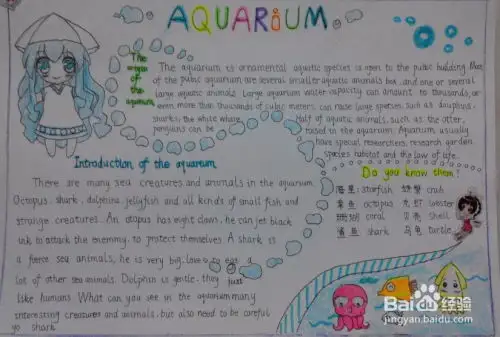 AQUARiUM
The
origin
of the
aquarium
The aquarium is ornamental aquatic species is open to the public building. Mass
of the public aquarium are several smaller aquatic animals box, and one or several
large aquatic animals Large aquarium water capacity can amount to thousands, or
even more than thousands of cubic meters, can raise large species, such as dauphins,
sharks, the white whale
penguins can be
Half of aquatic animals, such as the otter,
raised in the aquarium, Aquarium usually
have special researchers, research garden
species habitat and the law of life.
Introduction of the aquarium
There are many sea creatures and animals in the aquarium
Octopus, shark, dolphins, jellyfish and all kinds of small fish and
strange creatures. An otopus has eight claws, he can jet black
ink to attack the enemy, to protect themselves A shark is
a fierce sea animals, he is very big, love to eat a
lot of other sea animals. Dolphin is gentle, they just
like humans What can you see in the aquarium many
interesting creatures and animals, but also need to be careful
yo shark
Do you know them!
海星 starfish 螃蟹 crab
章鱼 octopus 龙虾 lobster
珊瑚 coral 贝壳 shell
鲨鱼 shark 乌龟 turtle
Baidu 经验
jingyan.baidu.com